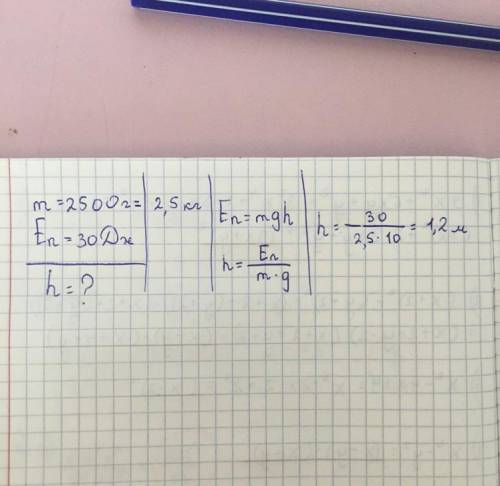 m = 2500г = 2,5 кг
Eп = 30 Дж
h = ?
Eп = mgh
h = Eп / m·g
h = 30 / 2,5·10 = 1,2 м